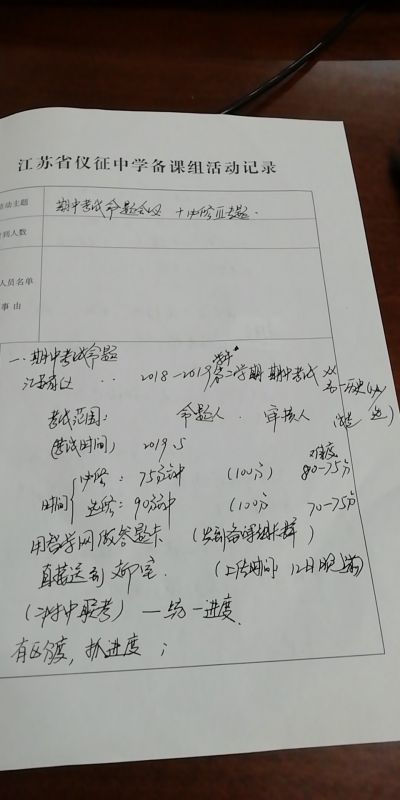 江苏省仪征中学备课组活动记录
活动主题 期中考试命题会议 + 必修Ⅱ专题.
到人数
人员名单
事由
一.期中考试命题
江苏省仪 .. 2018-2019学年第二学期期中考试 高一历史
考试范围: 命题人. 审核人
(考试时间) 2019.5 难度
时间 必修: 75分钟 (100分) 80-75分
选修: 90分钟 (100分) 70-75分
用智学网做答题卡 (发到备课组长群)
直接送到文印室. (上传时间 12日晚上前)
中联考) — 统一进度.
有区分度, 抓进度;